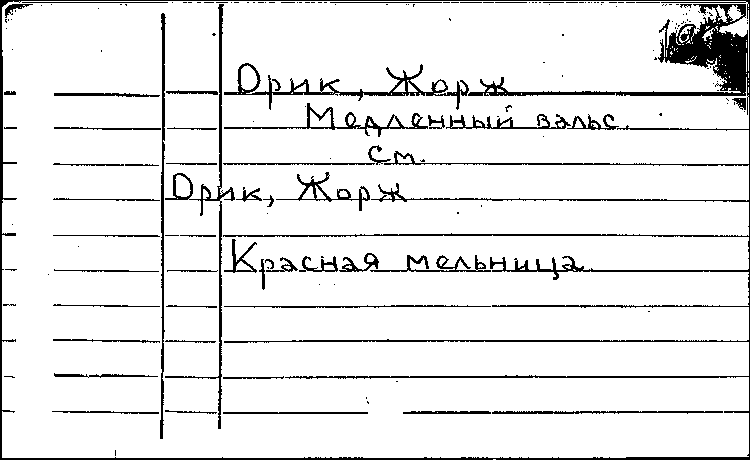 Орик, Жорж
Медленный вальс.
см.
Орик, Жорж
Красная мельница.